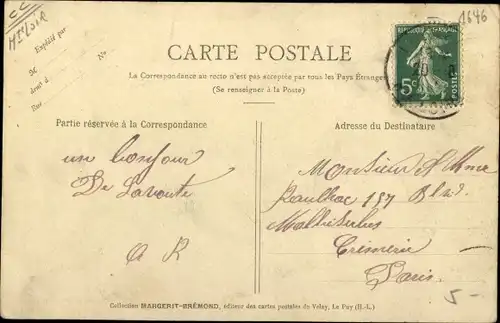 CC
Hte Loire
1646
Expédié par
M
demt à
Rue
No
CARTE POSTALE
La Correspondance au recto n'est pas acceptée par tous les Pays Étrangers
(Se renseigner à la Poste)
REPUBLIQUE FRANÇAISE
5c
POSTES
Partie réservée à la Correspondance
Adresse du Destinataire
un bonjour
De Lavoute
A R
Monsieur & Mme
Paulhac 157 Bld
Malesherbes
Crèmerie
Paris
5-
Collection MARGERIT-BRÉMOND, éditeur des cartes postales du Velay, Le Puy (H.-L.)